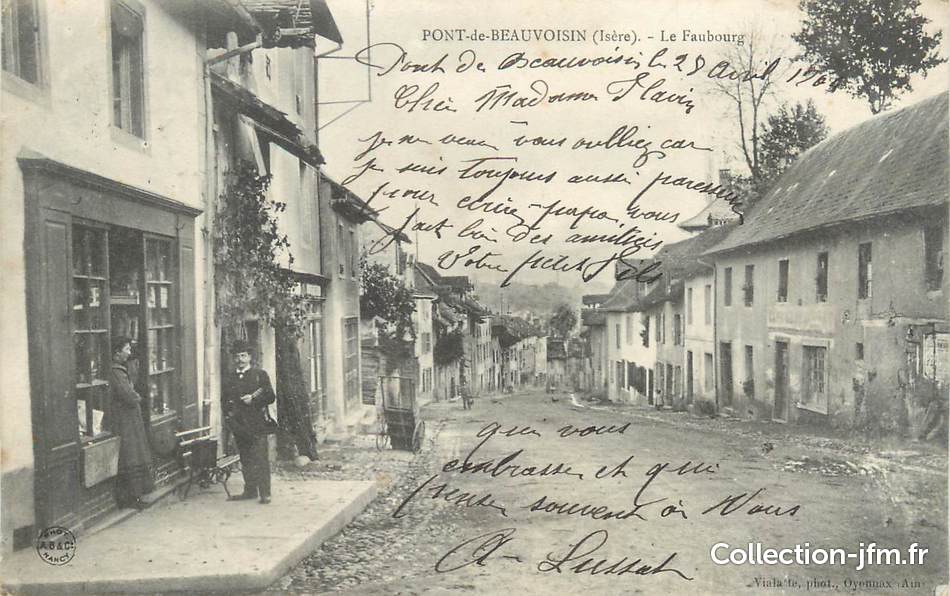 PONT-de-BEAUVOISIN (Isère). - Le Faubourg
Pont de Beauvoisin le 28 Avril 190
Chère Madame Flavie
je ne veux vous oublier car
je suis toujours aussi paresseux
pour écrire papa vous
fait bien des amitiés
Votre petit
qui vous
embrasse et qui
pense souvent à Vous
A. Lussat
PHOT
A.B.&C
NANCY
Collection-jfm.fr
Vialatte, phot., Oyonnax (Ain)